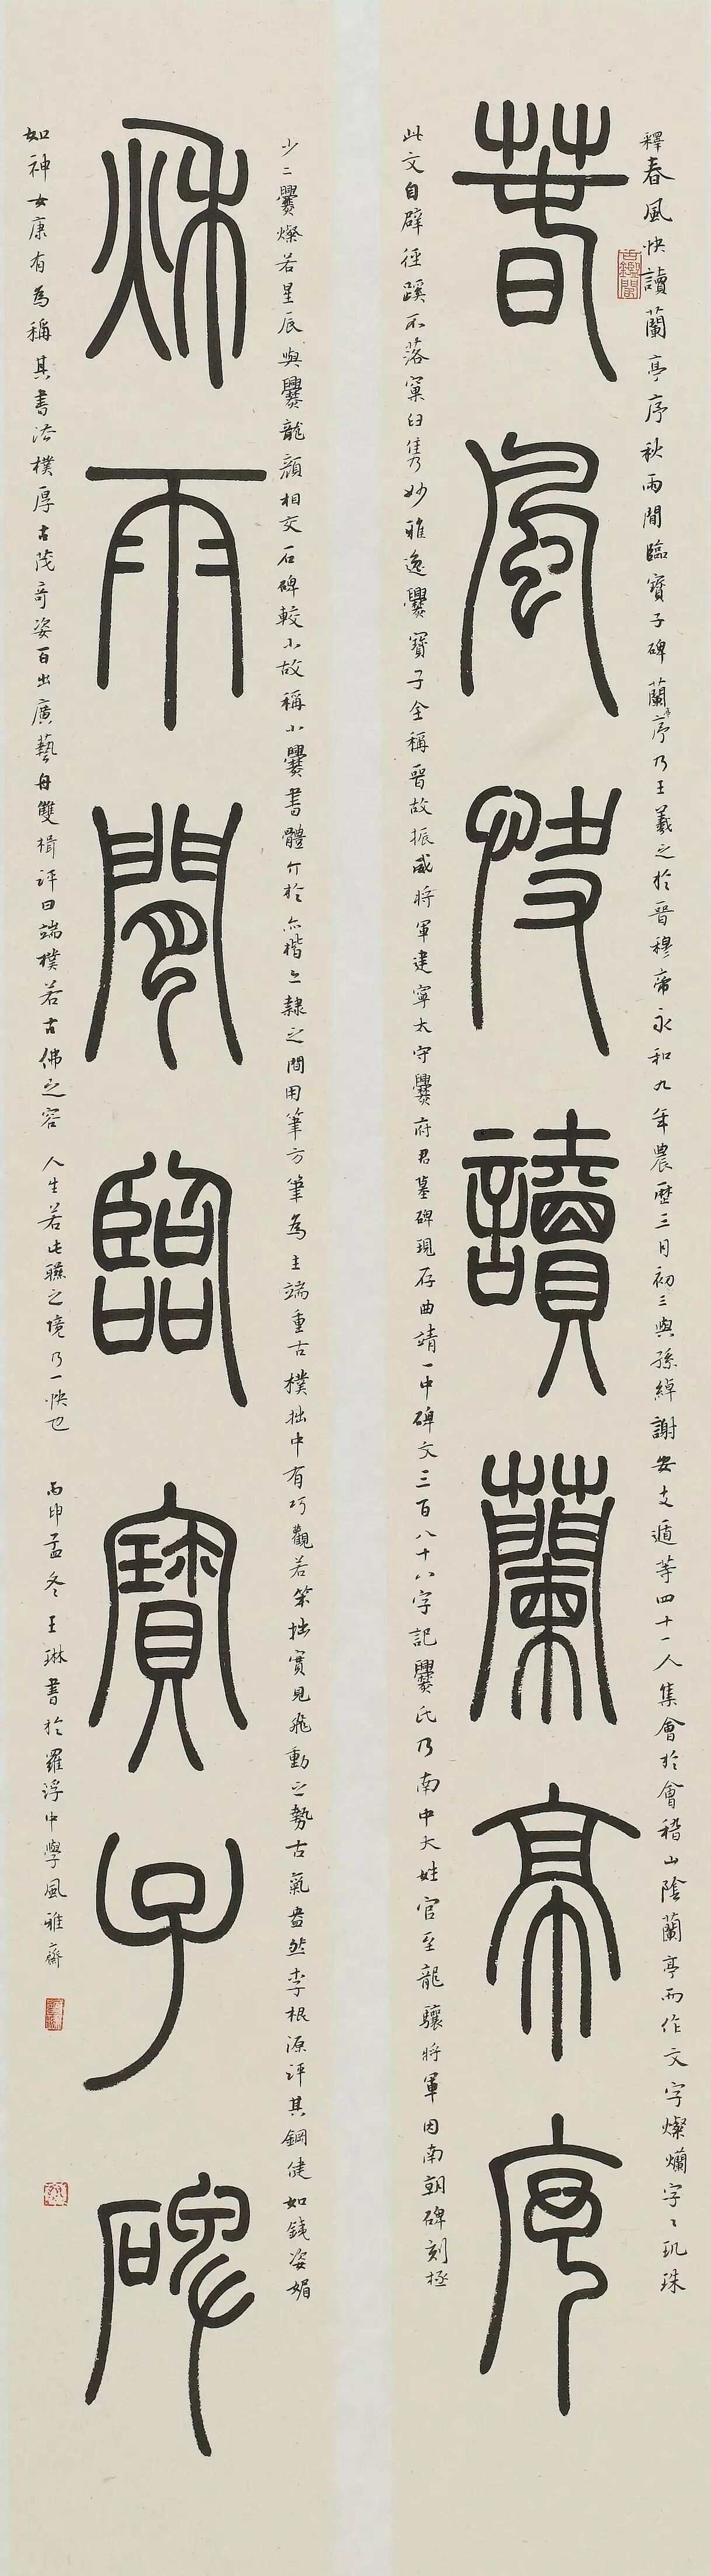 春風快讀蘭亭序
釋春風快讀蘭亭序秋雨閒臨寶子碑 蘭序乃王羲之於晉穆帝永和九年農歷三月初三與孫綽謝安支遁等四十一人集會於會稽山陰蘭亭而作文字燦爛字〻玑珠
此文自辟徑蹊不落窠臼隽妙雅逸爨寶子全稱晉故振威將軍建寧太守爨府君墓碑現存曲靖一中碑文三百八十八字記爨氏乃南中大姓官至龍驤將軍因南朝碑刻極
秋雨閒臨寶子碑
少二爨燦若星辰與爨龍顔相交石碑較小故稱小爨書體介於亦楷亦隸之間用筆方筆為主端重古樸拙中有巧觀若笨拙實見飛動之勢古氣盎然李根源評其鋼健如鐵姿媚
如神女康有為稱其書法樸厚古茂奇姿百出廣藝舟雙楫評曰端樸若古佛之容 人生若此聯之境乃一快也 丙申孟冬王琳書於羅浮中學風雅齋